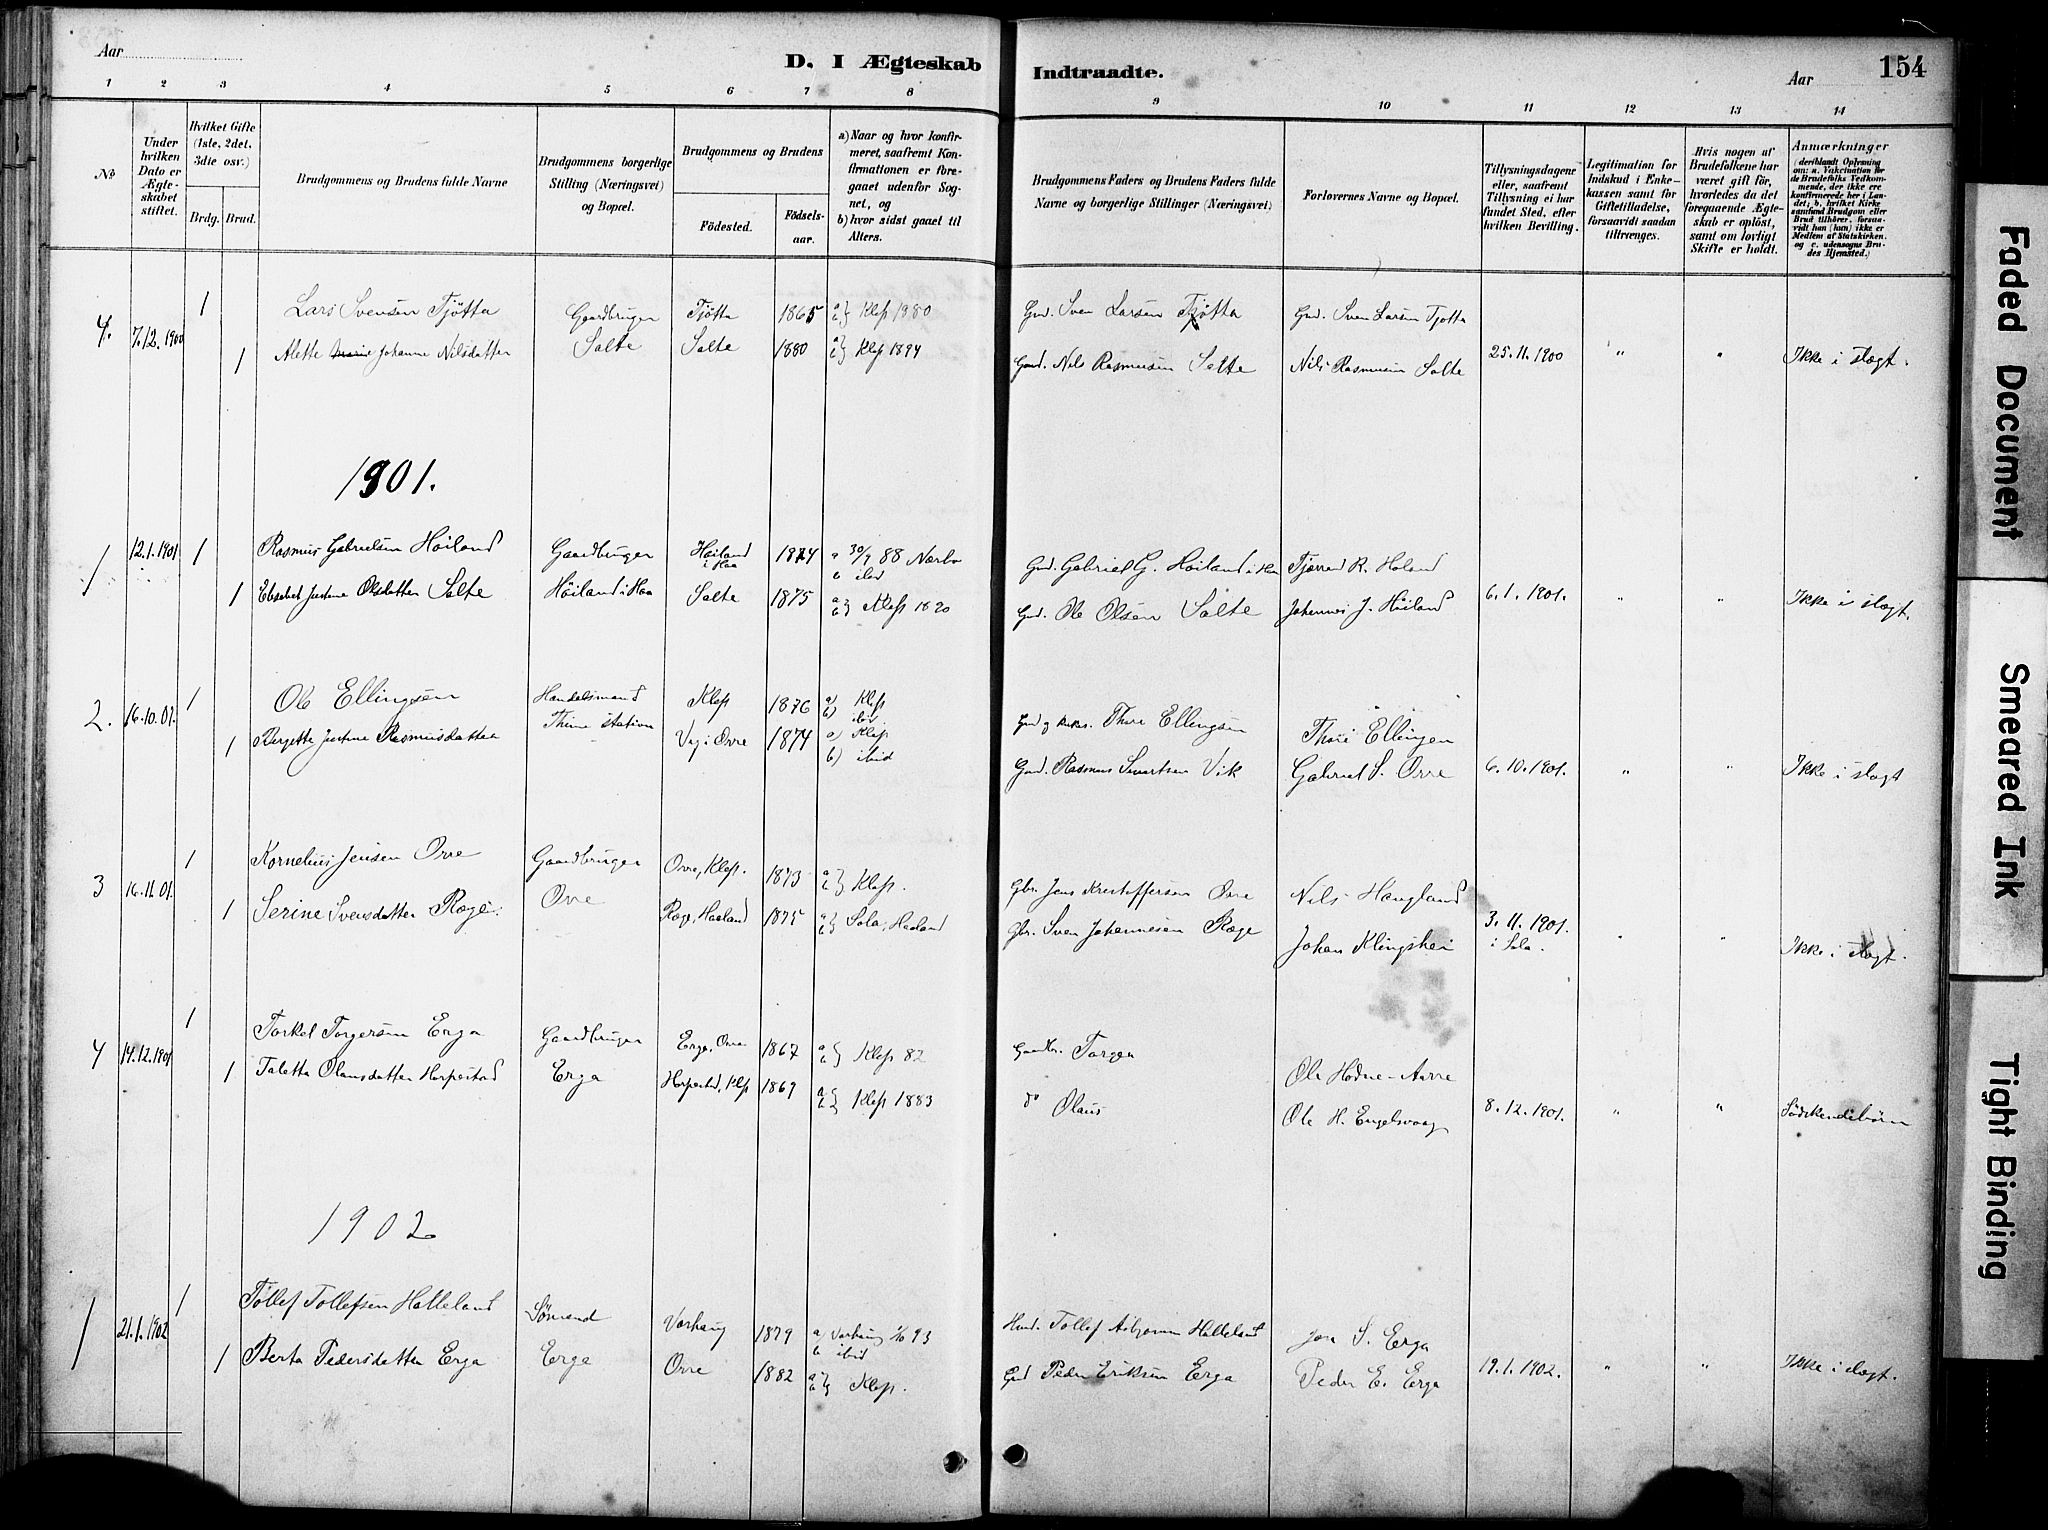 Aar
D. I Ægteskab Indtraadte.
Aar
154
1 2 3 4 5 6 7 8 9 10 11 12 13 14
No
Under hvilken Dato er Ægteskabet stiftet.
Hvilket Gifte (1ste, 2det, 3die osv.)
Brdg. Brud.
Brudgommens og Brudens fulde Navne
Brudgommens borgerlige Stilling (Næringsvei) og Bopæl.
Brudgommens og Brudens
Fødested.
Fødselsaar.
a) Naar og hvor konfirmeret, saafremt Konfirmationen er foregaaet udenfor Sognet, og
b) hvor sidst gaaet til Alters.
Brudgommens Faders og Brudens Faders fulde Navne og borgerlige Stillinger (Næringsvei)
Forlovernes Navne og Bopæl.
Tillysningsdagene eller, saafremt Tillysning ei har fundet Sted, efter hvilken Bevilling.
Legitimation for Indskud i Enkekassen samt for Giftetilladelse, forsaavidt saadan tiltrænges.
Hvis nogen af Brudefolkene har været gift før, hvorledes da det foregaaende Ægteskab er opløst, samt om lovligt Skifte er holdt.
Anmærkninger (deriblandt Oplysning om: a. Vakcination for de Brudefolks Vedkommende, der ikke ere konfirmerede her i Landet; b. hvilket Kirkesamfund Brudgom eller Brud tilhører, forsaavidt han (hun) ikke er Medlem af Statskirken, og c. udensogns Brudes Hjemsted.)
4. 7/12. 1900 1 Lars Svensen Tjøtta Gaardbruger Tjøtta 1865 a b} Klep 1980 Gmd. Sven Larsen Tjøtta Gmd. Sven Larsen Tjøtta
1 Alette Johanne Nilsdatter Salte Salte 1880 a b} Klep 1894 Gmd. Nils Rasmussen Salte Nils Rasmusen Salte 25.11.1900 " " Ikke i slægt.
1901.
1 12.1.1901 1 Rasmus Gabrielsen Høiland Gaardbruger Høiland i Haa 1874 a 30/9 88 Nærbø b ibid Gmd. Gabriel G. Høiland i Haa R. Høland
1 Elisabet Justine Olsdatter Salte Høiland i Haa Salte 1875 a b} Klep 1820 Gmd. Ole Olsen Salte Johannes J. Høiland 6.1.1901. " " Ikke i slægt.
2. 16.10.01. 1 Ole Ellingsen Handelsmand Klep 1876 a) Klep b) ibid Thore Ellingsen Thore Ellingsen
1 Bergette Justine Rasmusdatter Thime station Orre 1874 a) Klep b) ibid Gmd. Rasmus Sivertsen Vik Gabriel S. Orre 6.10.1901. " " Ikke i slægt
3 16.11.01. 1 Kornelius Jensen Orre Gaardbruger Orre, Klep. 1873 a b} Klep. Gbr. Jens Kristoffersen Orre Nils Haugland
1 Serine Svensdatter Røge. Orre Røge, Haaland 1875 a b} Sola, Haaland Gbr. Sven Johannesen Røge Johan Klingshei 3.11.1901. i Sola. " " Ikke i slægt.
4 14.12.1901 1 Torkel Torgersen Erga Gaardbruger Erga, Orre 1867 a b} Klep 82 Gaardbr. Torger Ole Hodne-Aarre
1 Taletta Olausdatter Horpestad Erga Horpestad, Klep 1869 a b} Klep 1883 do Olaus Ole H. Engelsvaag 8.12.1901. " " Södskendebörn
1902
1 21.1.1902 1 Tollef Tollefsen Halleland Sømand Varhaug 1879 a) Varhaug 93 b ibid Tollef Halleland S. Erga
1 Berta Pedersdatter Erga Erga Orre 1882 a b} Klep. Gmd Peder Eriksen Erga Peder E. Erga 19.1.1902. " " Ikke i slægt.
Faded Document
Smeared Ink
Tight Binding